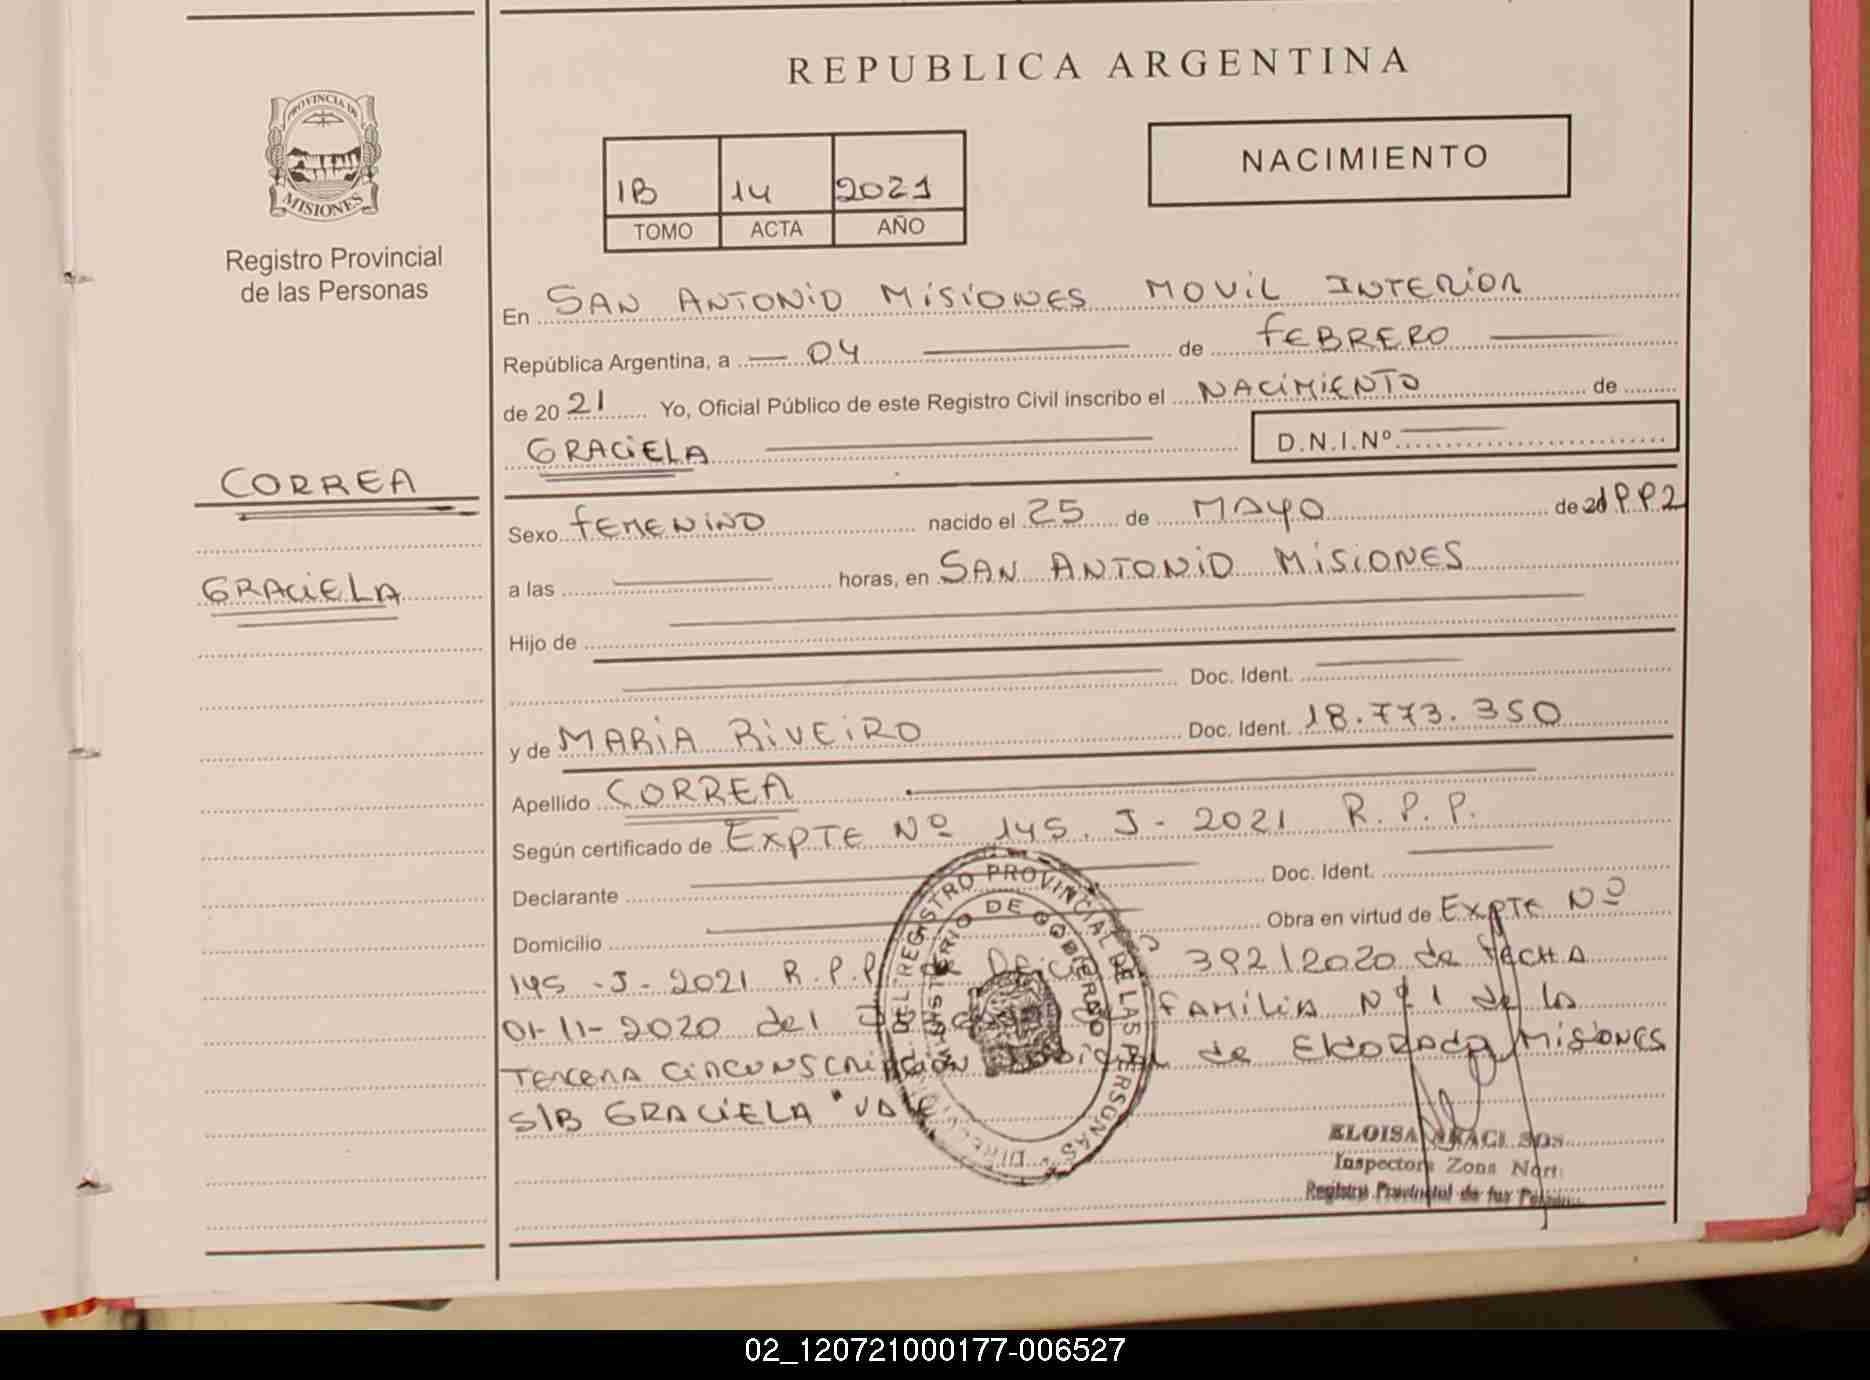 REPUBLICA ARGENTINA
PROVINCIA DE
MISIONES
Registro Provincial
de las Personas
IB 14 2021
TOMO ACTA AÑO
NACIMIENTO
En SAN ANTONIO MISIONES MOVIL INTERIOR
República Argentina, a 04 de FEBRERO
de 2021 Yo, Oficial Público de este Registro Civil inscribo el NACIMIENTO de
GRACIELA D.N.I.Nº
CORREA
GRACIELA
Sexo FEMENINO nacido el 25 de MAYO de 1992
a las horas, en SAN ANTONIO MISIONES
Hijo de
Doc. Ident.
y de MARIA RIVEIRO Doc. Ident. 18.773.350
Apellido CORREA
Según certificado de EXPTE Nº 145. J - 2021 R.P.P.
Declarante Doc. Ident.
Domicilio Obra en virtud de EXPTE Nº
145 - J - 2021 R.P.P. 392/2020 de FECHA
01-11-2020 del FAMILIA Nº 1 de la
TERCERA CIRCUNSCRIPCION de ELDORADO, MISIONES
S/B GRACIELA "VALE
REGISTRO PROVINCIAL DE LAS PERSONAS
MINISTERIO DE GOBIERNO
ELOISA
Inspectora Zona Norte
Registro Provincial de las
02_120721000177-006527